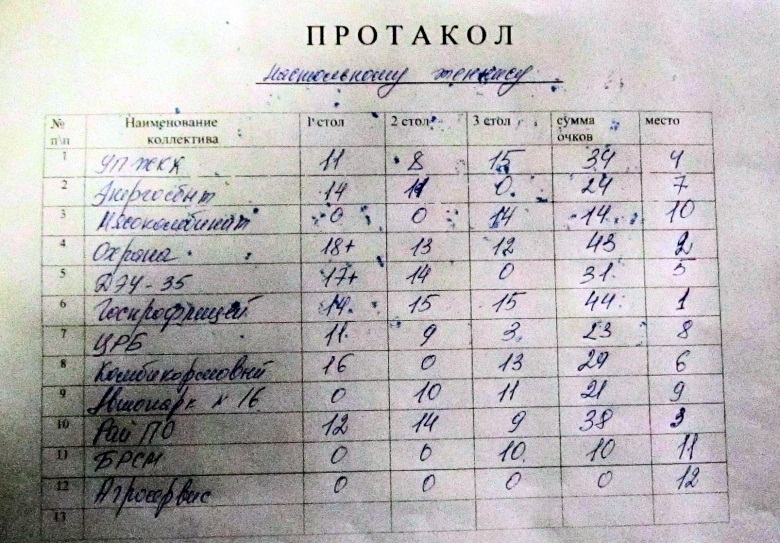 ПРОТАКОЛ
Настольному теннису
№ п\п Наименование коллектива 1 стол 2 стол 3 стол сумма очков место
1 УП ЖКХ 11 8 15 34 4
2 Энергосбыт 14 11 0 24 7
3 Мясокомбинат 0 0 14 14 10
4 Охрана 18+ 13 12 43 2
5 ДЭУ-35 17+ 14 0 31 5
6 14 15 15 44 1
7 ЦРБ 11 9 3 23 8
8 Комбикормовый 16 0 13 29 6
9 Автопарк №16 0 10 11 21 9
10 Рай ПО 12 14 9 38 3
11 БРСМ 0 0 10 10 11
12 Агросервис 0 0 0 0 12
13